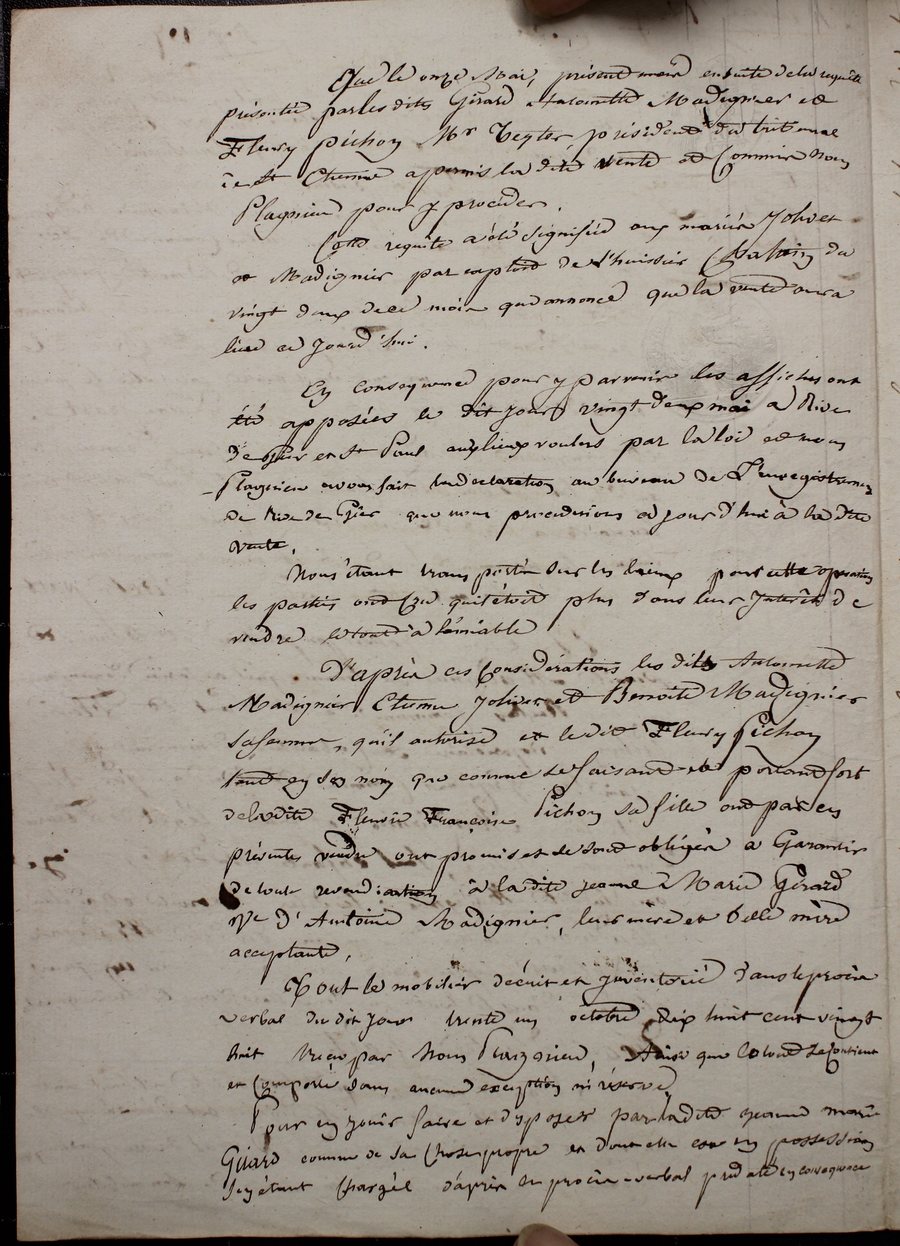 Que le onze Mai, présent mois ensuite de la requête
présentée par les dits Girard Antoinette Madignier et
Fleury pichon Mr Teyter, président du tribunal
de St Etienne a permis la dite vente et Commis nous
Plagnieu pour y procéder.
Cette requête a été signifiée aux mariés Jolivet
et Madignier par exploit de l'huissier du
vingt deux de ce mois qui annonce que la vente aura
lieu ce jourd'hui.
En conséquence pour y parvenir les affiches ont
été apposées le dit jour vingt deux mai a Rive
de gier et St Paul aux lieux voulus par la loi et nous
Plagnieu avons fait la declaration au bureau de L'enregistrement
de Rive de Gier que nous procédérions ce jour d'hui à la dite
vente.
Nous étant transporté sur les lieux pour cette opération
les parties ont cru qu'il étoit plus dans leurs Intérêts de
vendre le tout à l'amiable
D'après ces Considérations les dits Antoinette
Madignier, Etienne Jolivet et Benoite Madignier
sa femme, qu'il autorise et le dit Fleury Pichon
tant en son nom que comme se faisant et portant fort
de la dite Fleurie Françoise Pichon sa fille ont par ces
présentes vendu ont promis et se sont obligés a Garantir
de tout revendication à la dite jeanne Marie Girard
Ve d'Antoine Madignier, leur mère et belle mère
acceptante,
Tout le mobilier décrit et Inventorié dans le procès
verbal du dit jour trente un octobre dix huit cent vingt
huit reçu par Nous Plagnieu, Ainsi que le tout se Contient
et Comporte sans aucune exception ni réserve
Pour en jouir faire et disposer par ladite jeanne marie
Girard comme de sa Chose propre et dont elle est en possession
s'en étant Chargée d'après le procès-verbal prédaté en conséquence